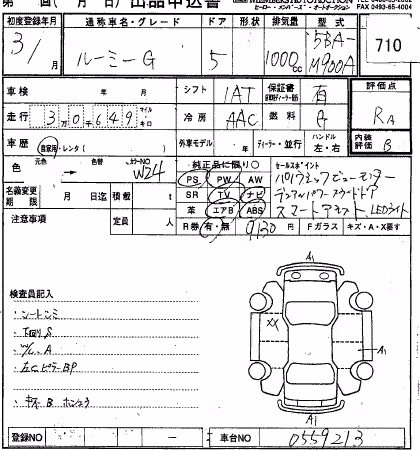 出品申込書
初度登録年月 通称車名・グレード ドア 形状 排気量 型式
3/ 月 ルーミーG 5 1000cc 5BA-M900A 710
車検 年 月 シフト IAT 保証書 有 評価点
走行 3万0千649 マイル キロ 冷房 AAC 燃料 G RA
車歴 自家用・レンタ( ) 外車モデル 年 ディーラー・並行 ハンドル 左・右 内装評価 B
色 元色 色替 カラーNO W24 純正品に限り○ セールスポイント
PS PW AW パノラミックビューモニター
名義変更期限 月 日迄 積載 t SR TV ナビ デュアルパワースライドドア
革 エアB ABS スマートアシスト LEDライト
注意事項 定員 人 R券 有・無 9130円 Fガラス キズ・A・X要す
A1
検査員記入
シートシミ
下回りS XX
W/C.A A1
左CピラーBP
A1
登録NO 車台NO 0559213